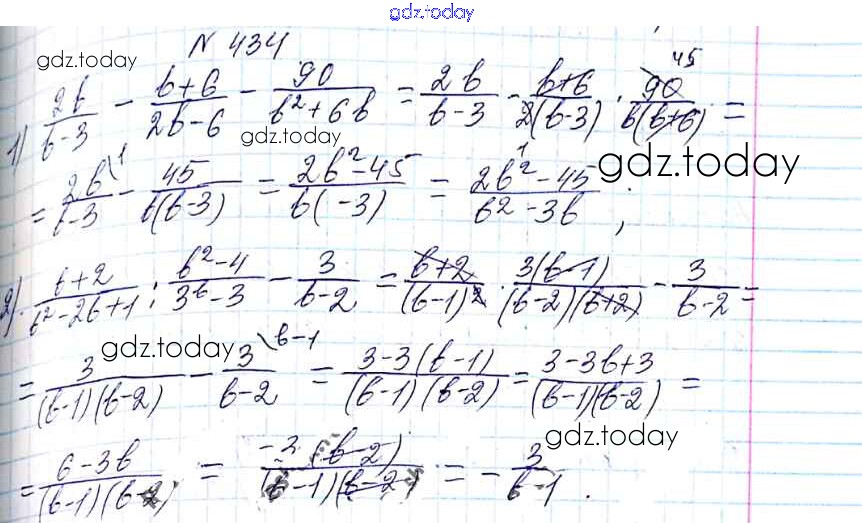 gdz.today
№ 434
gdz.today
1) 2b/(b-3) - (b+6)/(2b-6) - 90/(b²+6b) = 2b/(b-3) - (b+6)/(2(b-3)) · 90/(b(b+6)) =
45
gdz.today
gdz.today
= 2b/(b-3) - 45/(b(b-3)) = (2b²-45)/(b( -3)) = (2b²-45)/(b²-3b) ;
2) (b+2)/(b²-2b+1) : (b²-4)/(3b-3) - 3/(b-2) = (b+2)/(b-1)² · 3(b-1)/((b-2)(b+2)) - 3/(b-2) =
gdz.today
= 3/((b-1)(b-2)) - 3/(b-2) \b-1 = (3-3(b-1))/((b-1)(b-2)) = (3-3b+3)/((b-1)(b-2)) =
gdz.today
= (6-3b)/((b-1)(b-2)) = -3(b-2)/((b-1)(b-2)) = - 3/(b-1) .